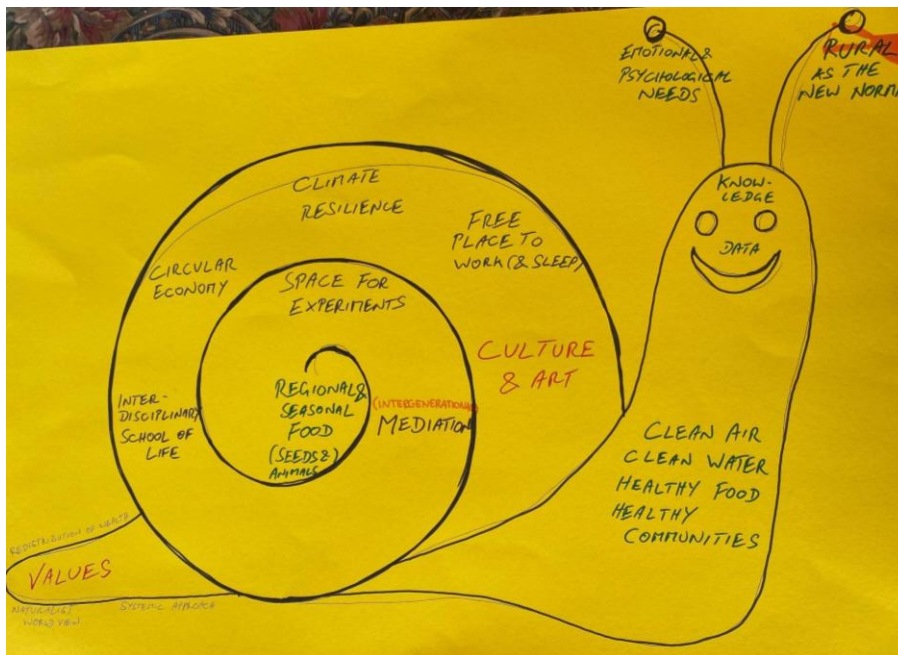 EMOTIONAL &
PSYCHOLOGICAL
NEEDS
RURAL
AS THE
NEW NORM
KNOW-
LEDGE
DATA
CLIMATE
RESILIENCE
FREE
PLACE TO
WORK (& SLEEP)
CIRCULAR
ECONOMY
SPACE FOR
EXPERIMENTS
CULTURE
& ART
INTER-
DISCIPLINARY
SCHOOL OF
LIFE
REGIONAL &
SEASONAL
FOOD
(SEEDS &)
ANIMALS
(INTERGENERATIONAL)
MEDIATION
CLEAN AIR
CLEAN WATER
HEALTHY FOOD
HEALTHY
COMMUNITIES
REDISTRIBUTION OF WEALTH
VALUES
NATURALIST
WORLD VIEW
SYSTEMIC APPROACH